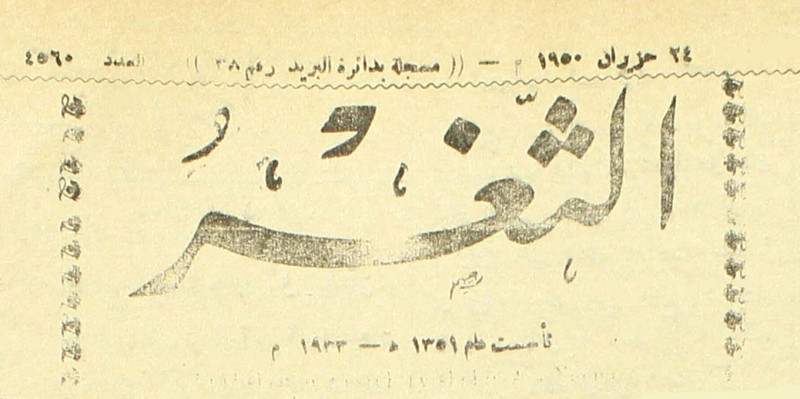 ٢٤ حزيران ١٩٥٠ م — (( مسجلة بدائرة البريد رقم ٣٠٨ )) العدد ٤٥٦٠
الثّغْرُ
تأسست عام ١٣٥١ هـ — ١٩٣٣ م